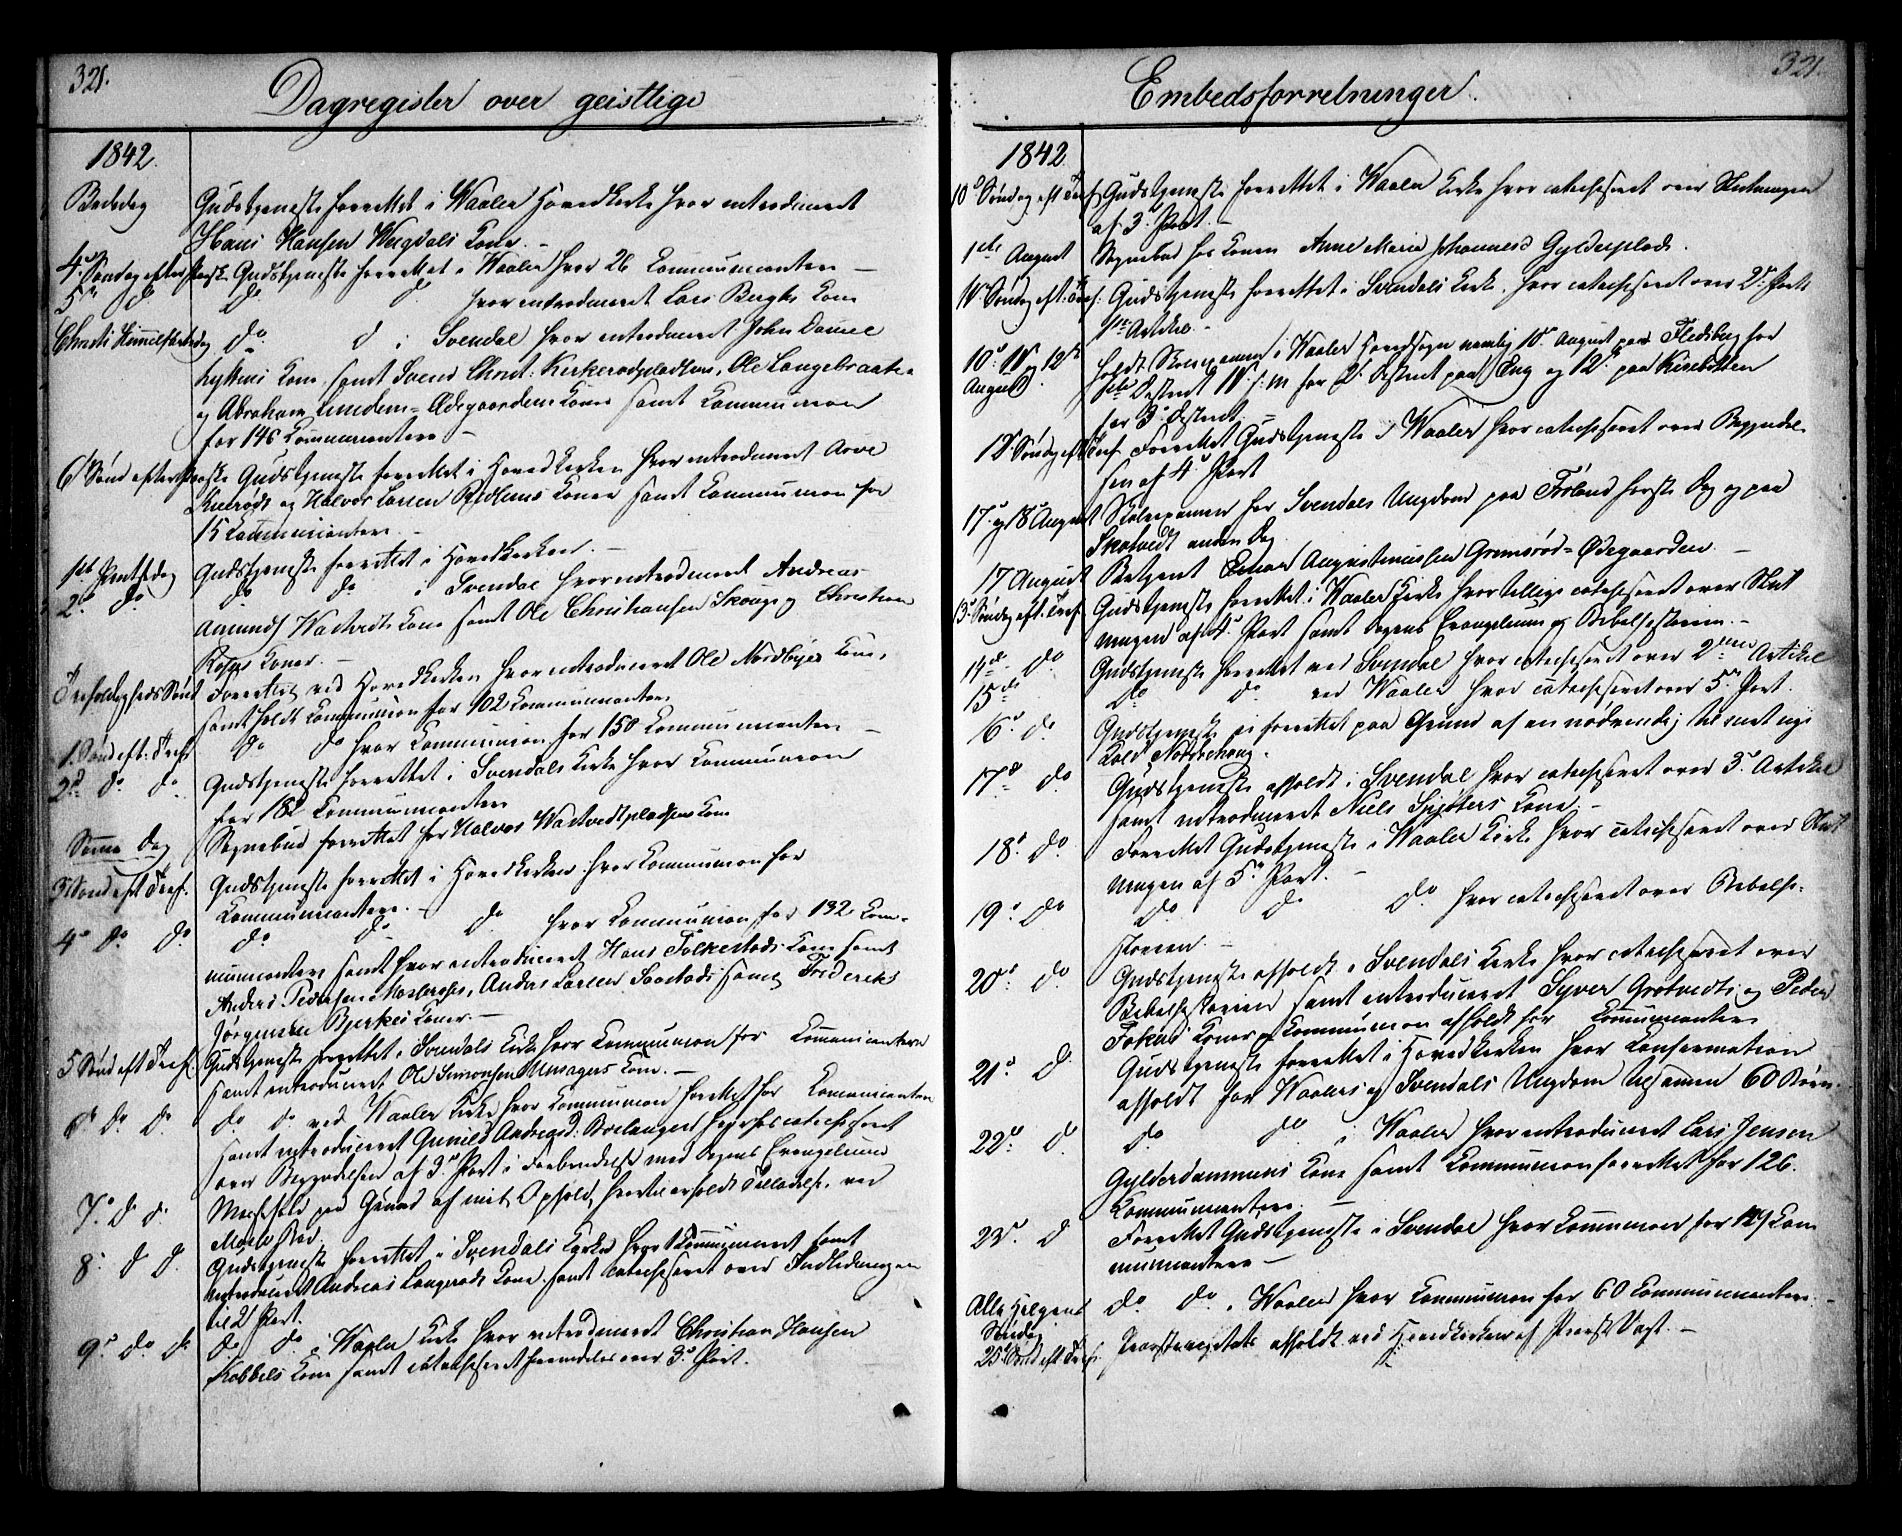 321.
Dagregister over geistlige
1842.
Bededag Gudstjeneste forrettet i Waaler Hovedkirke hvor introduceret
Hans Hansen Kone. –
4de Søndag efter Paaske Gudstjeneste forrettet i Waaler hvor 26 Communicanter –
5te do do do hvor introduceret Lars Berghs Kone
Christi Himmelfartsdag do d i Svendal hvor introduceret John Daniel
Lyttens Kone, samt Svend Christ. Kirkerødpladsen, Ole Langebraate
og Abraham Ødegaardens Koner samt Communion
for 146 Communicantere –
6 Sønd efter Paaske Gudstjeneste forrettet i Hovedkirken hvor introduceret Arve
og Halvor Larsen Koner samt Communion for
15 Communicantere –
1ste Pintsedag Gudstjeneste forrettet i Hovedkirken. –
2d do. do do i Svendal hvor introduceret Andreas
Amunds Kone samt Ole Christiansen Skoug og Christian
Koner. –
Trefoldigheds Sønd Forrettet ved Hovedkirken hvor introduceret Ole Nordbyes Kone,
samt holdt Communion for 102 Communicantere
1. Sønd eft. Tref. do do hvor Communion for 150 Communicantere –
2d do do Gudstjeneste forrettet i Svendals Kirke hvor Communion
for 182 Communicantere
Samme Dag Sognebud forrettet for Halvor Kone
3 Sønd eft Tref. Gudstjeneste forrettet i Hovedkirken hvor Communion for
Communicantere. –
4de do do. do do do hvor Communion for 132 Com-
municantere samt hvor introduceret Hans Folkestads Kone samt
Anders Pedersen, Anders Larsen samt Frederik
Jørgensen Bjerkes Koner. –
5 Sønd eft Tref. Gudstjeneste forrettet i Svendals Kirke hvor Communion for Communicantere
samt introduceret Ole Simonsen Kone. –
6te do do. do. do ved Waaler Kirke hvor Communion forrettet for Communicanter
samt introduceret Gunild Andreasd. catechiseret
over Begyndelsen af 3de Part i Forbindelse med Dagens Evangelium
7de do do. Messefald paa Grund af mit Ophold, hvortil erholdt Tilladelse, ved
Moss Bad.
8. d d. Gudstjeneste forrettet i Svendals Kirke hvor samt
introduceret Andreas Langerøds Kone samt catechiseret over Indledningen
til 2 Part.
9de do do do do i Waaler Kirke hvor introduceret Christian Hansen
Kabbels Kone samt catechiseret over 3de Part.
321.
Embedsforretninger.
1842
10de Søndag eft Tref Gudstjeneste forrettet i Waaler Kirke hvor catechiseret over Slutningen
af 3de Part. –
1ste August Sognebud hos Konen Anne Maria Johannesd Gylderplads.
11te Søndag eft. Tref. Gudstjeneste forrettet i Svendals Kirke, hvor catechiseret over 2den Parts
1ste Artikel –
10de 11te og 12te August. holdt Skoleexamen i Waaler Hovedsogn nemlig 10de August paa Fledsberg for
1ste District 11te for 2d District paa Eng og 12te paa Kirsebotten
for 3de District.
12te Søndag eft Tref Forrettet Gudstjeneste i Waaler hvor catechiseret over Begyndel-
sen af 4de Part
17de og 18de August Skoleexamen for Svendals Ungdom paa første Dag og paa
Skotvedt anden Dag
17 August Betjent Augustinussen Grimsrød-Ødegaarden. –
13de Søndag eft. Tref. Gudstjeneste forrettet i Waaler Kirke hvor tillige catechiseret over Slut
ningen af 4de Part samt Dagens Evangelium og Bibelhistorien. –
14de do Gudstjeneste forrettet ved Svendal hvor catechiseret over 2den Artikel
15de do do ved Waaler hvor catechiseret over 5te Part.
16de do. Gudstjeneste ei forrettet paa Grund af en nødvendig

17de do. Gudstjeneste afholdt i Svendal hvor catechiseret over 3de Artikel
samt introduceret Niels Kone. –
18de do. Forrettet Gudstjeneste i Waaler Kirke hvor catechiseret over Slut
ningen af 5te Part. –
19de do do do do hvor catechiseret over Bibelhi-
storien. –
20de do. Gudstjeneste afholdt i Svendals Kirke hvor catechiseret over
Bibelhistorien samt introduceret Syver Grøtvedts og Peder
Koner og Communion afholdt for Communicanter
21de d. Gudstjeneste forrettet i Hovedkirken hvor Confirmation
afholdt for Waalers og Svendals Ungdom tilsammen 60 Børn.
22de d do do i Waaler hvor introduceret Lars Jensen
Gylderdammens Kone samt Communion forrettet for 126.
Communicantere. –
23de d Forrettet Gudstjeneste i Svendal hvor Communion for 129 Com
municantere –
Alle Helgens Søndag do do i Waaler hvor Communion for 60 Communicantere. –
25de Sønd eft Tref. afholdt ved Hovedkirken af Provst Vogt. –